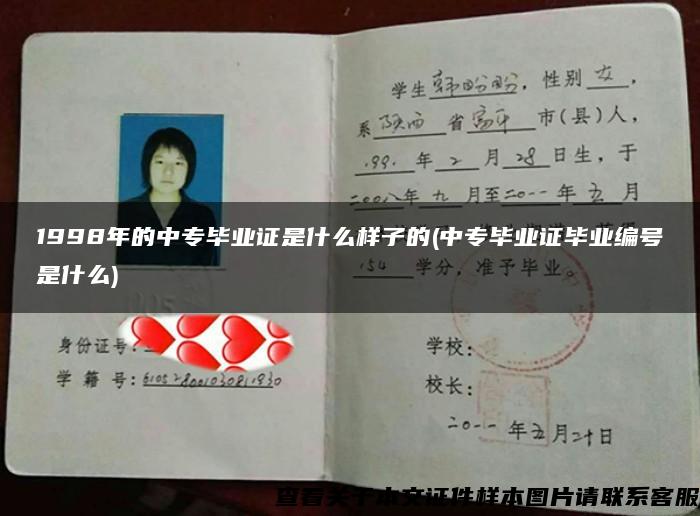 学生韩盼盼，性别女，
系陕西省富平市(县)人，
1991年2月28日生，于
二00八年九月至二0一一年五月
1998年的中专毕业证是什么样子的(中专毕业证毕业编号
是什么)
154学分，准予毕业。
身份证号：
学籍号：
学校：
校长：
二0一一年五月二十日
查看关于本文证件样本图片请联系客服